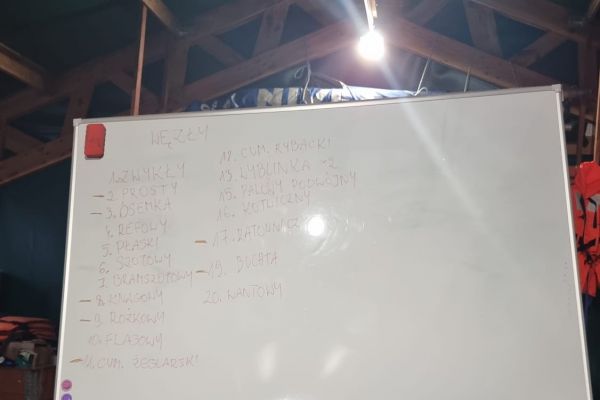 WĘZŁY
1. ZWYKŁY
- 2. PROSTY
- 3. ÓSEMKA
4. REFOWY
5. PŁASKI
6. SZOTOWY
7. BRAMSZOTOWY
- 8. KNAGOWY
- 9. ROŻKOWY
10. FLAGOWY
- 11. CUM. ŻEGLARSKI
12. CUM. RYBACKI
13. WYBLINKA -2
15. PALOWY PODWÓJNY
16. KOTWICZNY
- 17. RATOWNICZY
- 19. BUCHTA
20. WANTOWY